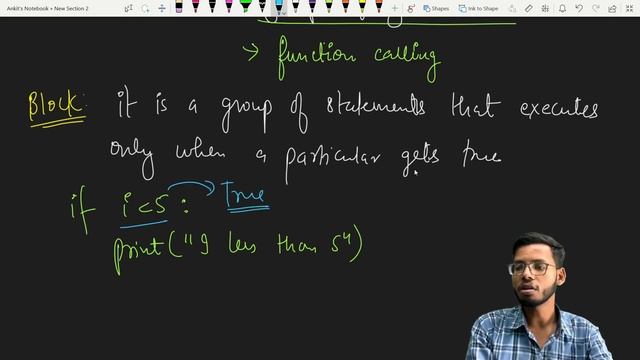 Ankit's Notebook » New Section 2
Shapes
Ink to Shape
> function calling
Block: it is a group of statements that executes
only when a particular gets true
if i<5 : True
print("I less than 5")